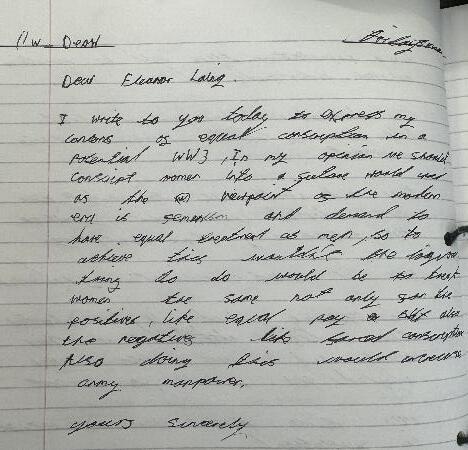 Dear Eleanor Laing.
I write to you today to express my
concerns of equal conscription in a
potential WW3, In my opinion we should
conscript women into a future world war
as the viewpoint of the modern
era is and demand to
have equal treatment as men, so to
achieve this wouldn't the logical
thing to do would be to treat
women the same not only for the
positives, like equal pay but also
the negatives like forced conscription
Also doing this would increase
army manpower.
yours sincerely